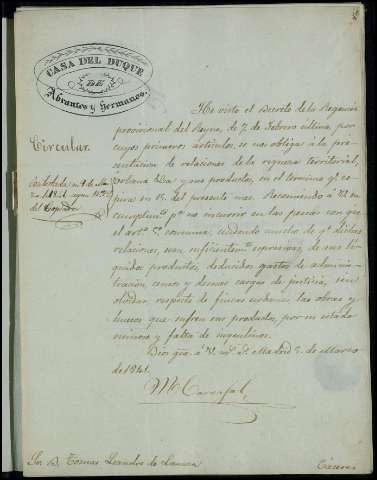 CASA DEL DUQUE
DE
Abrantes y Hermanos.
Circular.
Contestada en 1 de
del
He visto el Decreto de la Regencia
provisional del Reyno, de 7 de Febrero último, por
cuyos primeros artículos, se nos obliga á la pre-
sentacion de relaciones de la riqueza territorial,
urbana y sus productos, en el termino qe. es-
pira en 15 del presente mes. Recomiendo á Vd. su
cumplimto. pa. no incurrir en las penas con que
el arto. 5o. conmina, cuidando mucho de qe. dichas
relaciones, sean suficientemte. espresivas, de sus lí-
quidos productos, deducidos gastos de adminis-
tración, censos y demas cargas de justicia, sin
olvidar, respecto de fincas urbanas las obras y
huecos que sufren sus productos, por su estado
ruinoso y falta de inquilinos.
Dios gue. á V. ms. as. Madrid 5 de Marzo
de 1841.
M. Carvajal
Sor. D. Tomas Leandro de
Cáceres